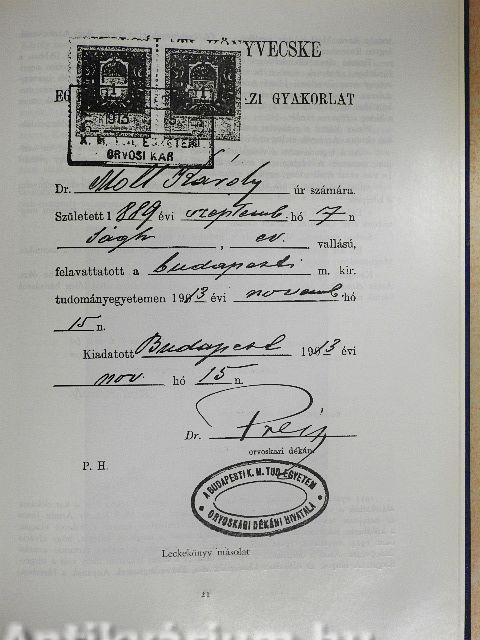 KÖNYVECSKE
GYAKORLAT
1913
K. M. TUD. EGYETEM
ORVOSI KAR
Dr. Moll Károly úr számára.
Született 1889 évi szeptemb. hó 7 n
Ságh, ev. vallású,
felavattatott a budapesti m. kir.
tudományegyetemen 1913 évi novemb. hó
15 n.
Kiadatott Budapest 1913 évi
nov. hó 15 n.
Dr.
orvoskari dékán.
P. H.
A BUDAPESTI K. M. TUD. EGYETEM
ORVOSKARI DÉKÁNI HIVATALA
Leckekönyv másolat
21
Antikvárium.hu